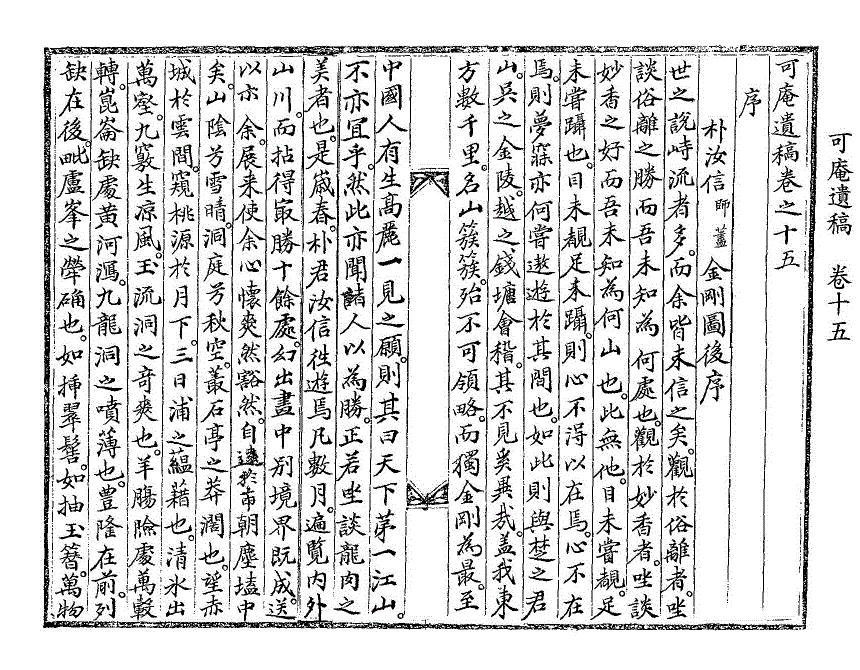 可庵遺稿　卷十五
可庵遺稿卷之十五
序
朴汝信師蓋金剛圖後序
世之說峙流者多。而余皆未信之矣。觀於俗離者。坐
談俗離之勝而吾未知為何處也。觀於妙香者。坐談
妙香之好而吾未知為何山也。此無他。目未嘗覩。足
未嘗躡也。目未覩足未躡。則心不得以在焉。心不在
焉。則夢寐亦何嘗遨遊於其間也。如此則與楚之君
山。吳之金陵。越之錢塘會稽。其不見奚異哉。盖我東
方數千里。名山簇簇。殆不可領略。而獨金剛為最。至
中國人有生高麗一見之願。則其曰天下苐一江山。
不亦宜乎。然此亦聞諸人以為勝。正若坐談龍肉之
美者也。是歲春。朴君汝信徃遊焉。凡數月。遍覽内外
山川。而拈得㝡勝十餘處。幻出畫中別境界。既成。送
以示余。展来使余心懷爽然豁然。自遠於市朝塵壒中
矣。山陰芳雪晴。洞庭芳秋空。叢石亭之莽濶也。望赤
城於雲間。窺桃源於月下。三日浦之蘊藉也。清氷出
萬壑。九竅生凉風。玉流洞之竒爽也。羊膓險處萬轂
轉。崑崙缺處黄河瀉。九龍洞之噴薄也。豊隆在前。列
缺在後。毗盧峯之犖确也。如揷翠髻。如抽玉簪。萬物